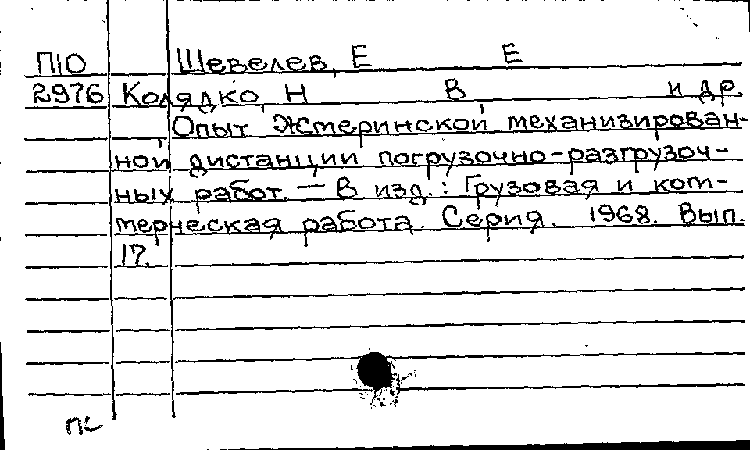 П10 Шевелев, Е Е
2976 Колядко, Н В, и др.
Опыт Жмеринской механизирован-
ной дистанции погрузочно-разгрузоч-
ных работ. — В изд.: Грузовая и ком-
мерческая работа. Серия. 1968. Вып.
17.